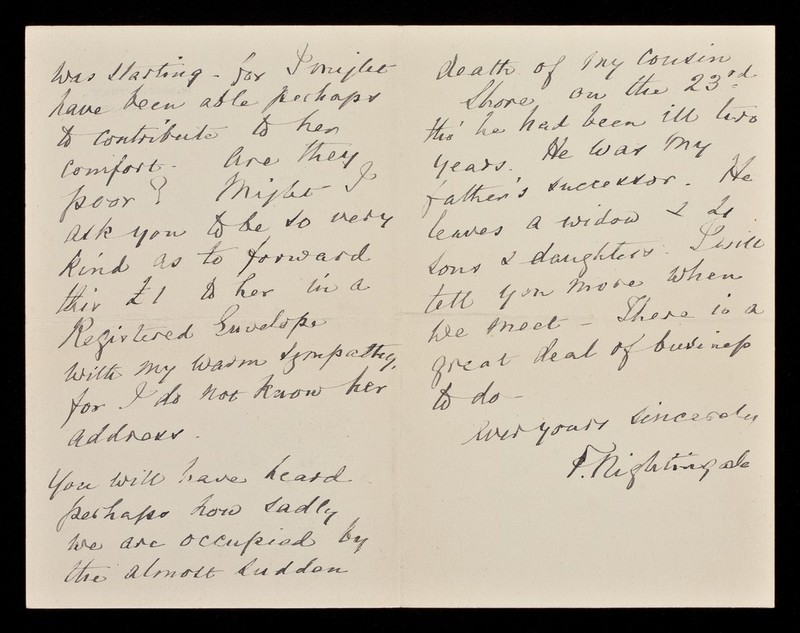 was starting - for I might
have been able perhaps
to contribute to her
comfort. Are they
poor? Might I
ask you to be so very
kind as to forward
this £1 to her in a
Registered Envelope
with my warm sympathy,
for I do not know her
address.
You will have heard
perhaps how sadly
we are occupied by
the almost sudden
death of my cousin
Shore on the 23rd
tho' he had been ill two
years. He was my
father's successor. He
leaves a widow & 2
sons & daughters. I will
tell you more when
we meet - There is a
great deal of business
to do -
ever yours sincerely
F. Nightingale